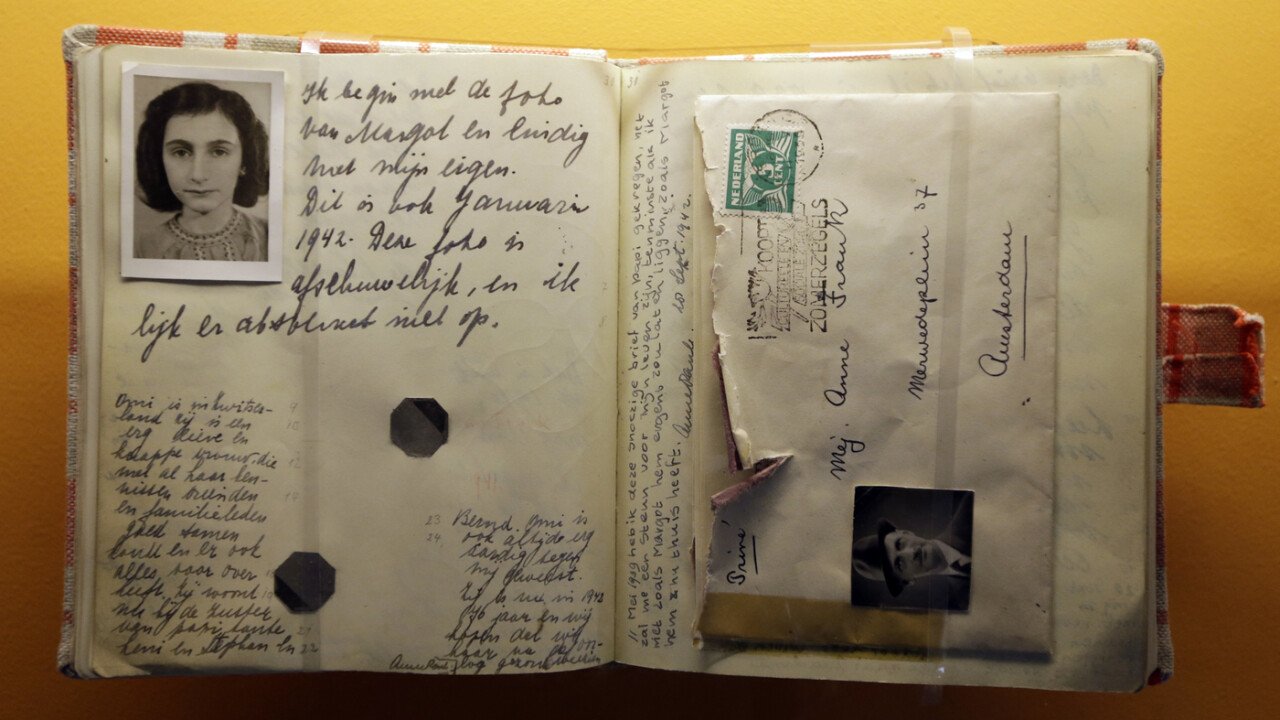 Ik begin met de foto
van Margot en eindig
met mijn eigen.
Dit is ook Januari
1942. Deze foto is
afschuwelijk, en ik
lijk er absoluut niet op.
Omi is in Zwitser-
land zij is een
erg lieve en
knappe vrouw, die
met al haar ken-
nissen vrienden
en familieleden
goed samen
en er ook
alles voor over
heeft, zij woont
bij de zuster
van papi tante
Leni en Stephan en
23 Bernd. Omi is
24 ook altijd erg
aardig tegen
mij geweest.
Zij is nu in 1942
76 jaar en wij
hopen dat wij
haar na de oor-
log gezond
Anne Frank
11 Mei 1939 heb ik deze snoezige brief van papi gekregen, het
zal me een steun voor mijn leven zijn, tenminste als ik
niet zoals Margot hem ergens zou laten liggen, zoals Margot
hem nu thuis heeft. Anne Frank. 20 Sept. 1942.
NEDERLAND
5
CENT
ZOMERZEGELS
Mej. Anne Frank
Merwedeplein 37
Amsterdam
Privé